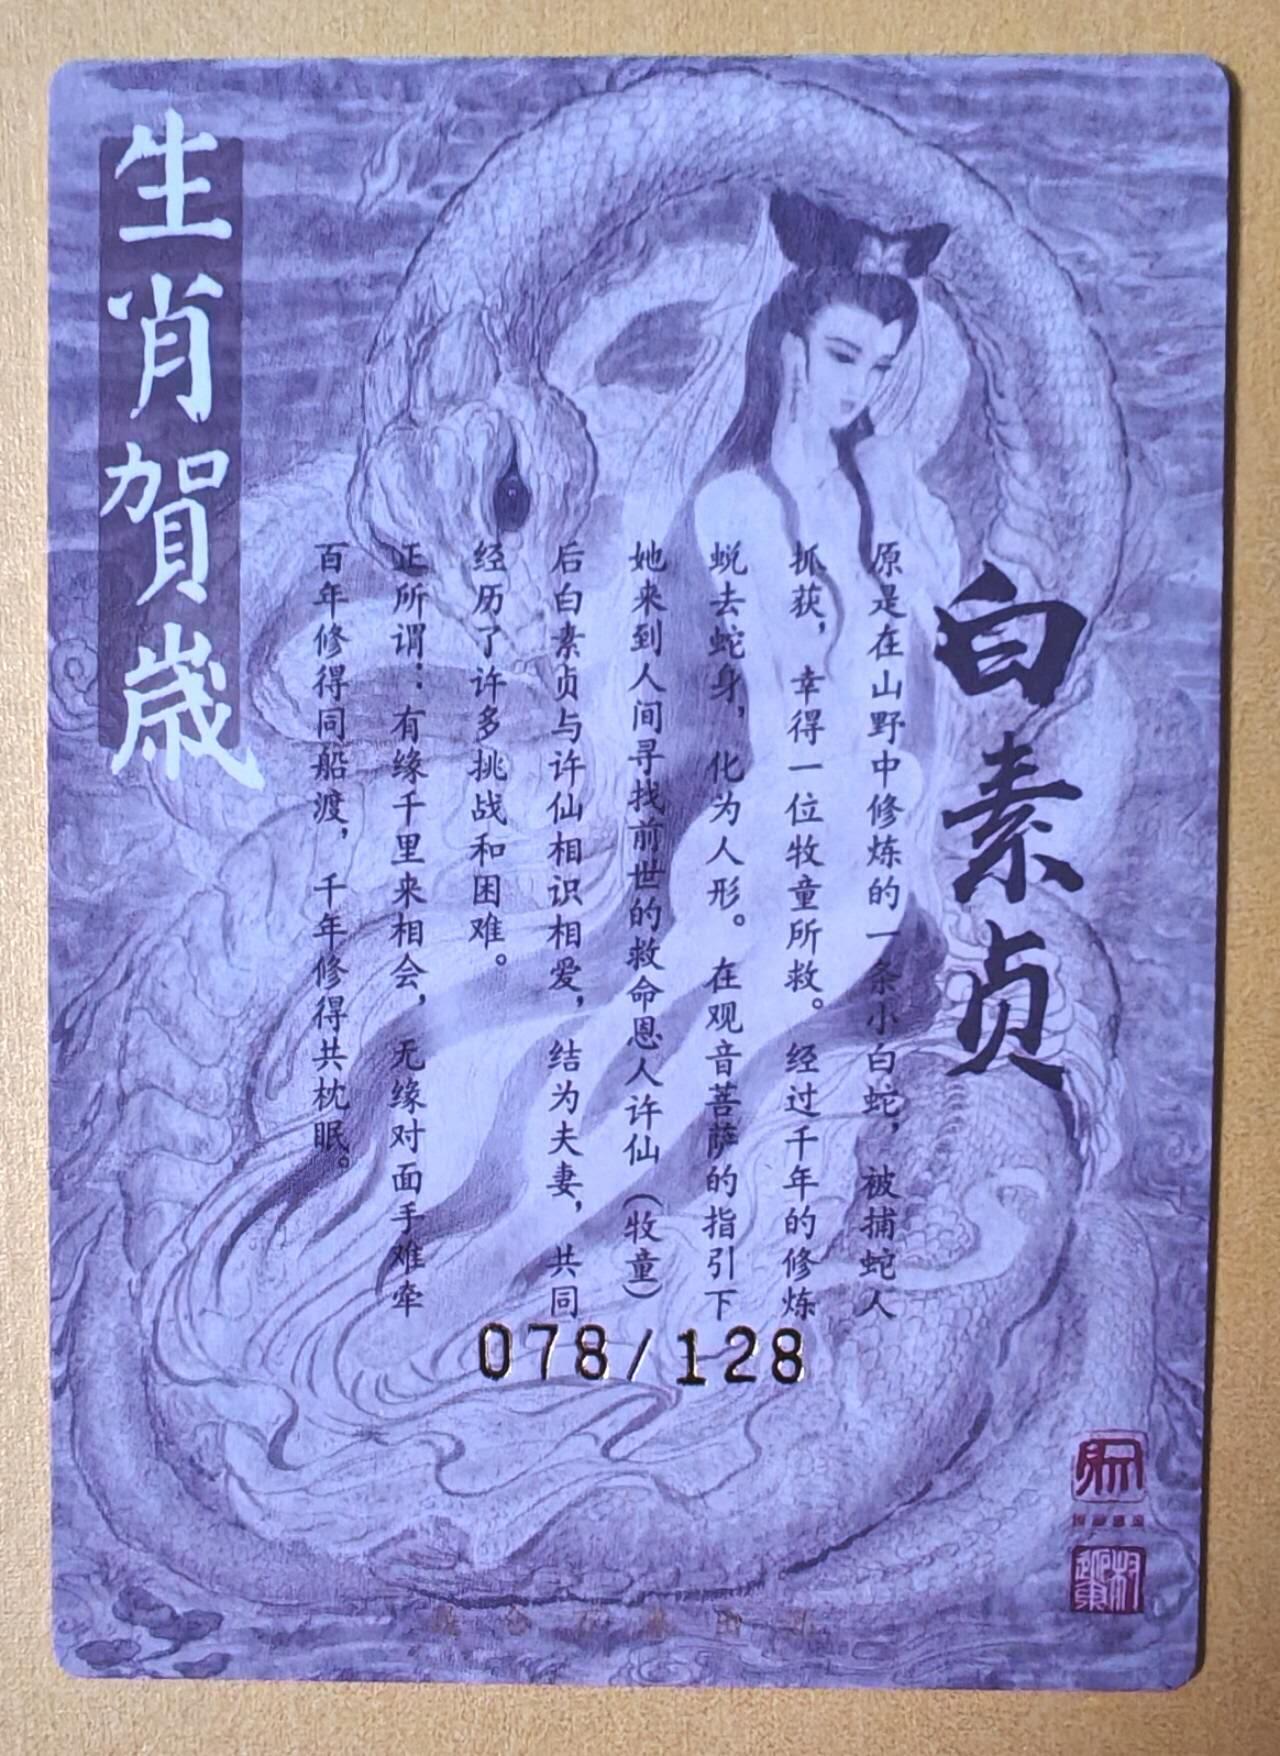 白素贞
原是在山野中修炼的一条小白蛇，被捕蛇人
抓获，幸得一位牧童所救。经过千年的修炼
蜕去蛇身，化为人形。在观音菩萨的指引下
她来到人间寻找前世的救命恩人许仙（牧童）
后白素贞与许仙相识相爱，结为夫妻，共同
经历了许多挑战和困难。
正所谓：有缘千里来相会，无缘对面手难牵
百年修得同船渡，千年修得共枕眠。
生肖賀歲
078/128